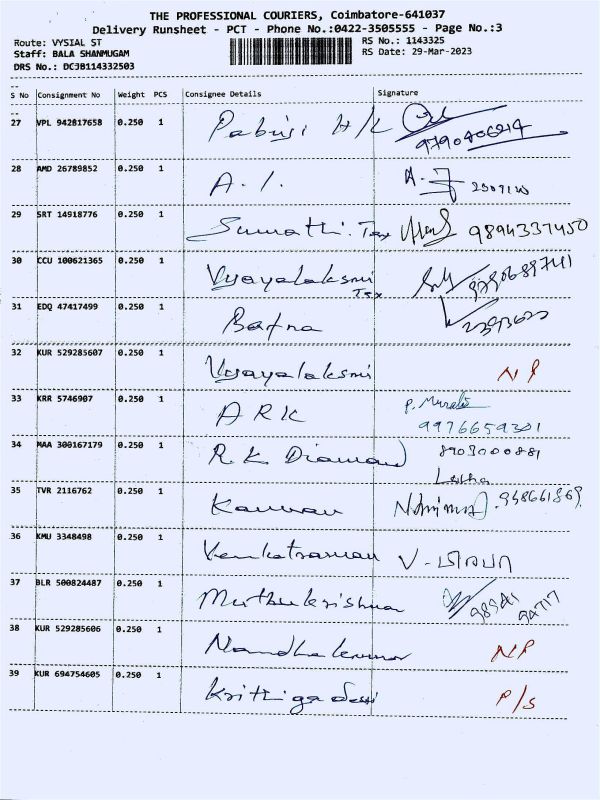 THE PROFESSIONAL COURIERS, Coimbatore-641037
Delivery Runsheet - PCT - Phone No.:0422-3505555 - Page No.:3
Route: VYSIAL ST RS No.: 1143325
Staff: BALA SHANMUGAM RS Date: 29-Mar-2023
DRS No.: DCJB114332503
S No Consignment No Weight PCS Consignee Details Signature
27 VPL 942817658 0.250 1 H/L
28 AMD 26789852 0.250 1 A.
29 SRT 14918776 0.250 1 Sumathi. Tex 9894337450
30 CCU 100621365 0.250 1 Vyayalaksmi
Tex
31 EDQ 47417499 0.250 1 Bafna
32 KUR 529285607 0.250 1 Vyayalaksmi NP
33 KRR 5746907 0.250 1 ARK P. Murali
9976659301
34 MAA 300167179 0.250 1 R.K Diamond 8903000881
Latha
35 TVR 2116762 0.250 1 Kannan
36 KMU 3348498 0.250 1 Venkatraman V-
37 BLR 500824487 0.250 1 Muthukrishna
38 KUR 529285606 0.250 1 Nandhakumar NP
39 KUR 694754605 0.250 1 Krithiga Devi P/S